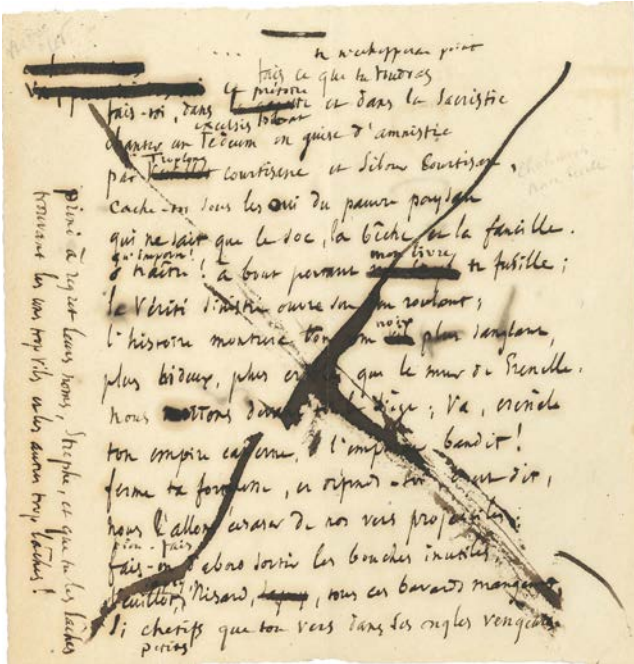 ...
tu n'échapperas point
fais ce que tu voudras
le prétoire
fais-toi, dans et dans la sacristie
excelsis
chanter un Tedeum en guise d'amnistie
Troplong
par courtisane et Sibour courtisan,
cache-toi sous les oui du pauvre paysan
qui ne sait que le soc, la bêche et la faucille.
qu'importe! mon livre
ô traître! à bout portant te fusille;
la Vérité sinistre ouvre son roulant;
noir
l'histoire montrera ton plus sanglant,
plus hideux, plus que le mur de Grenelle.
Nous mettons devant le siège; va, crénèle
ton empire caverne, ô l'empire bandit!
ferme ta forteresse, et défends-toi
nous l'allons écraser de nos vers projectiles;
fais-en d'abord sortir les bouches inutiles
Veuillot, Nisard, tous ces bavards
si chétifs que ton vers dans ses ongles vengeurs
petits
à regret leurs noms, Strophe, et que tu les lâches
trouvant les uns trop vils et les autres trop lâches!